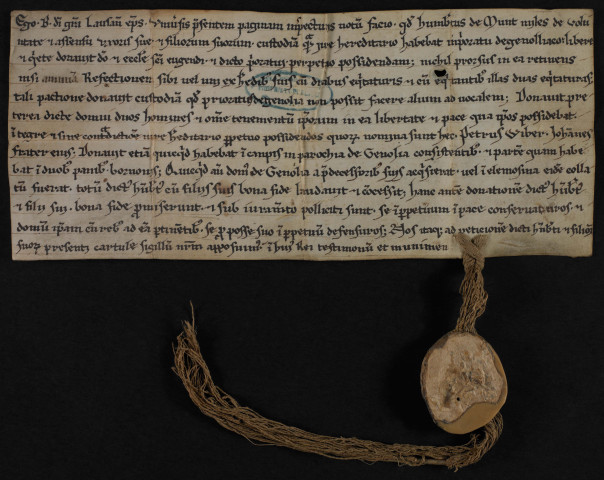 Ego .B. di gra Lausan eps. Universis psentem paginam inspecturis notu facio. qd humbtus de Munt miles de volu
ntate & assensu uxoris sue & filiorum suorum custodia qua iure hereditario habebat in poratu de genolliaco. libere
& qete donavit do & eccle sci eugendi & dicto poratui perpetuo possidendam. nichil prorsus in ea retinens
nisi annua Refectionem sibi vel uni ex hedib suis cu duabus eqtaturis & cu eqtantib illas duas eqtaturas.
tali pactione donavit custodia qd prioratus de genolia non possit facere alium advocatem. Donavit pre
terea dicte domui duos homines & omne tenementu ipsorum in ea libertate & pace qua ipsos possidebat
integre & sine contdictione iure hereditario ppetuo possidendos quorz nomina sunt hec. petrus Wiber. Johannes
frater eius. Donavit etia quicqd habebat i campis in parochia de Genolia consistentib. & parte quam habe
bat i duob panib borvonis. & quicqd au dom de Genolia a pdecessorib suis acqsierat. vel i elemosina eide colla
tu fuerat. totu dict hubt cu filiis suis bona fide laudavit & cocessit. hanc aute donatione dict hubt
& filii sui. bona fide pmiserunt. & sub iuramto polliciti sunt. se i ppetuum i pace conservaturos. &
domu ipsam cu reb ad ea ptinetib. se p posse suo i ppetuum defensuros. Nos itaq ad peticione dicti hubti & filiorz
suorz presenti cartule sigillu nrm apposuim. i huius rei testimoniu et munimen